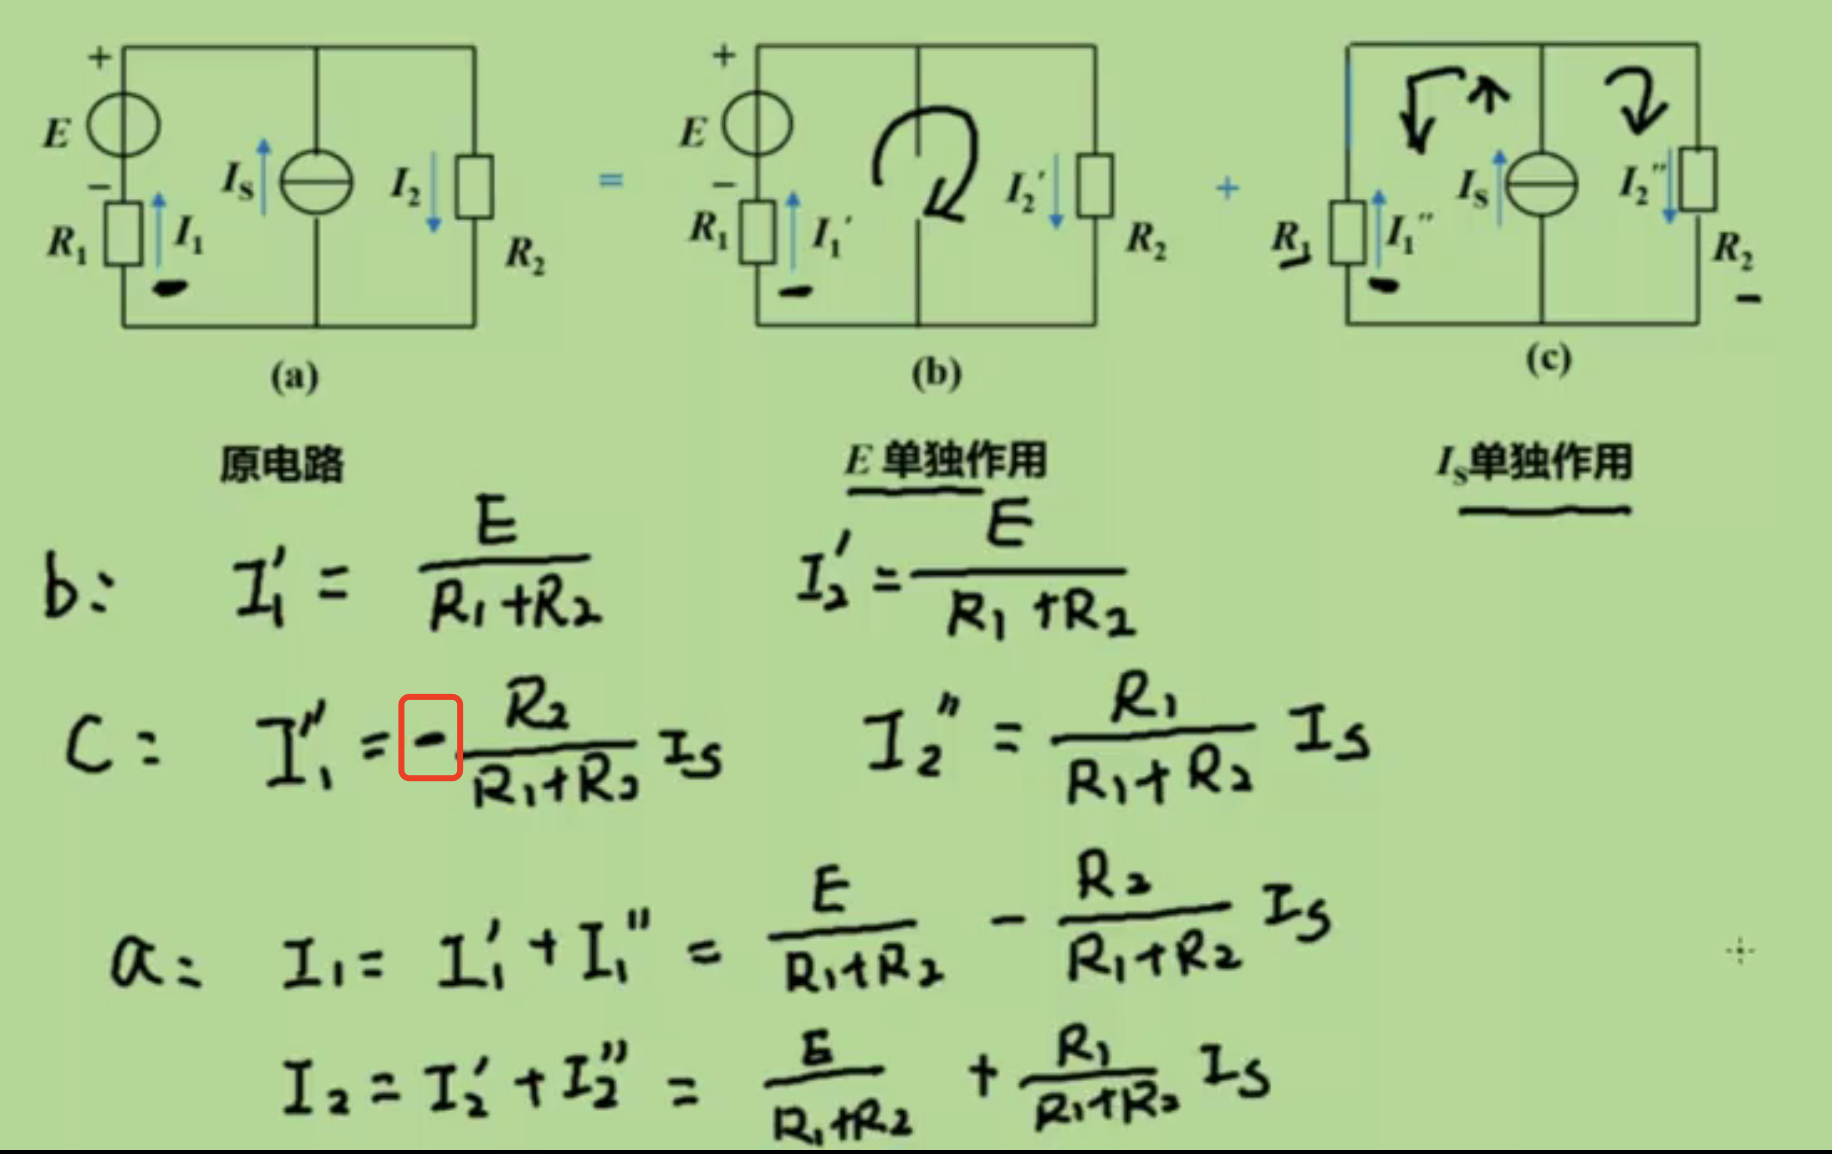 + E − R₁ I₁ Iₛ I₂ R₂ = + E − R₁ I₁′ I₂′ R₂ + R₁ I₁″ Iₛ I₂″ R₂
(a) (b) (c)
原电路 E 单独作用 Iₛ单独作用
b: I₁′ = E/(R₁+R₂) I₂′ = E/(R₁+R₂)
C: I₁″ = - R₂/(R₁+R₂) Iₛ I₂″ = R₁/(R₁+R₂) Iₛ
a: I₁ = I₁′ + I₁″ = E/(R₁+R₂) - R₂/(R₁+R₂) Iₛ
I₂ = I₂′ + I₂″ = E/(R₁+R₂) + R₁/(R₁+R₂) Iₛ